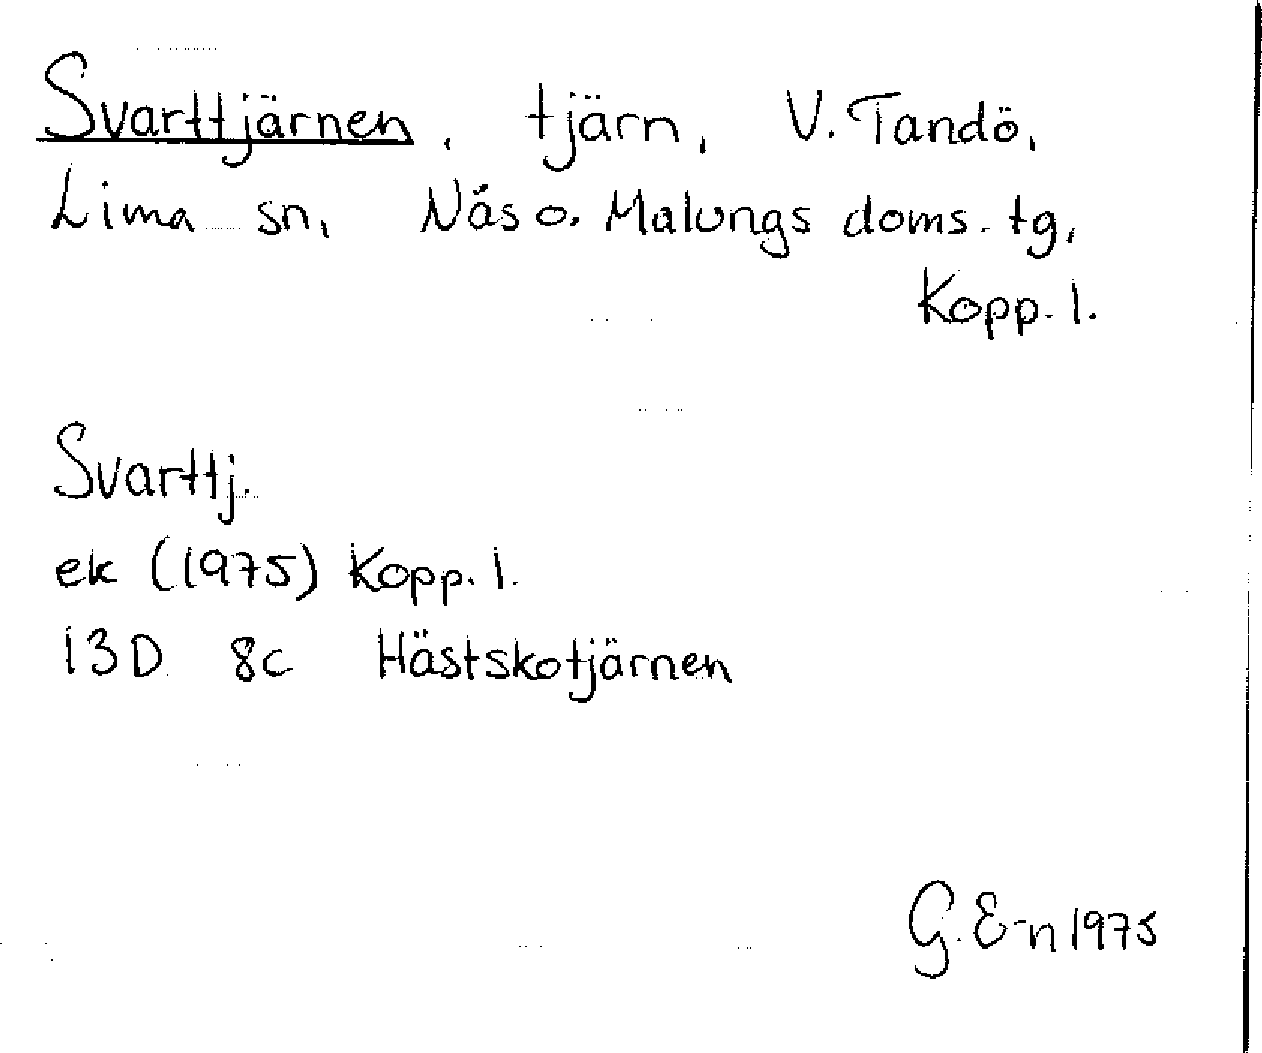 Svarttjärnen, tjärn, V. Tandö,
Lima sn, Nås o. Malungs doms. tg,
Kopp. l.
Svarttj.
ek (1975) Kopp. l.
13D 8c Hästskotjärnen
G. E-n 1975